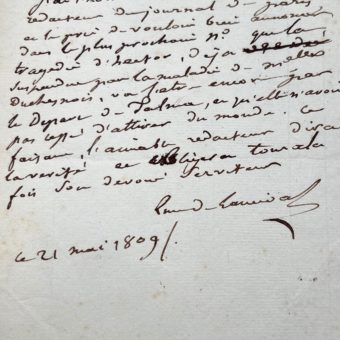 rédacteur du journal de paris
et le prie de vouloir bien annoncer
dans le plus prochain N° que la
tragédie d'hector, déja
suspendue par la maladie de Melle
duchesnois, va l'être encore par
le Départ de Talma, et qu'elle n'avoit
pas cessé d'attirer du monde. Ce
faisant, l'aimable redacteur dira
la vérité et obligera tout à la
fois Son dévoué Serviteur
Luce de Lancival
ce 21 mai 1809/.